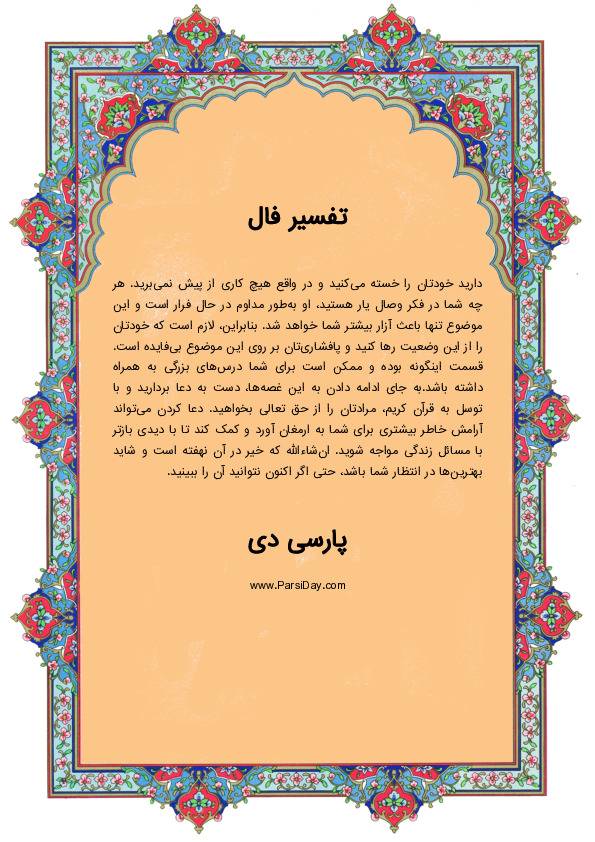 تفسیر فال
دارید خودتان را خسته می‌کنید و در واقع هیچ کاری از پیش نمی‌برید. هر
چه شما در فکر وصال یار هستید، او به‌طور مداوم در حال فرار است و این
موضوع تنها باعث آزار بیشتر شما خواهد شد. بنابراین، لازم است که خودتان
را از این وضعیت رها کنید و پافشاری‌تان بر روی این موضوع بی‌فایده است.
قسمت اینگونه بوده و ممکن است برای شما درس‌های بزرگی به همراه
داشته باشد.به جای ادامه دادن به این غصه‌ها، دست به دعا بردارید و با
توسل به قرآن کریم، مرادتان را از حق تعالی بخواهید. دعا کردن می‌تواند
آرامش خاطر بیشتری برای شما به ارمغان آورد و کمک کند تا با دیدی بازتر
با مسائل زندگی مواجه شوید. ان‌شاءالله که خیر در آن نهفته است و شاید
بهترین‌ها در انتظار شما باشد، حتی اگر اکنون نتوانید آن را ببینید.
پارسی دی
www.ParsiDay.com